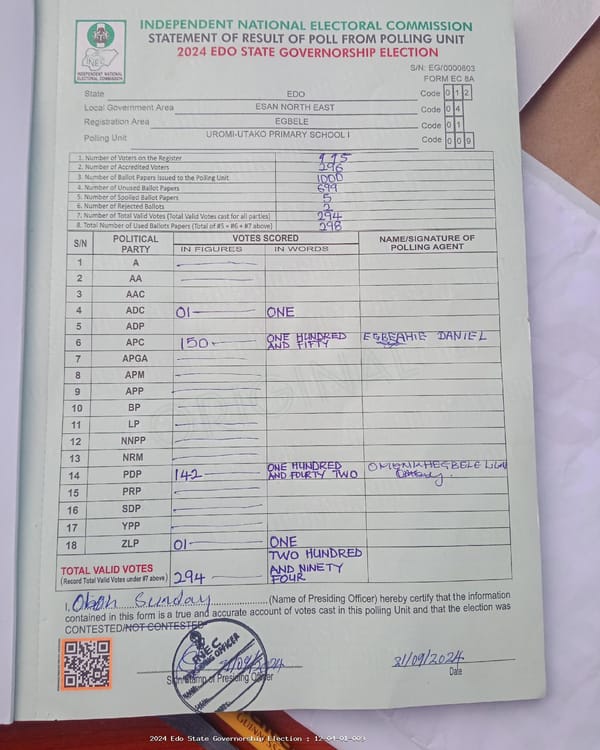 INDEPENDENT NATIONAL ELECTORAL COMMISSION
STATEMENT OF RESULT OF POLL FROM POLLING UNIT
2024 EDO STATE GOVERNORSHIP ELECTION
INEC
INDEPENDENT NATIONAL ELECTORAL COMMISSION
S/N: EG/0000803
FORM EC 8A
State EDO Code 0 1 2
Local Government Area ESAN NORTH EAST Code 0 4
Registration Area EGBELE Code 0 1
Polling Unit UROMI-UTAKO PRIMARY SCHOOL I Code 0 0 9
1. Number of Voters on the Register
2. Number of Accredited Voters 296
3. Number of Ballot Papers Issued to the Polling Unit 1000
4. Number of Unused Ballot Papers 699
5. Number of Spoiled Ballot Papers 5
6. Number of Rejected Ballots 2
7. Number of Total Valid Votes (Total Valid Votes cast for all parties) 294
8. Total Number of Used Ballots Papers (Total of #5 + #6 + #7 above) 298
S/N POLITICAL PARTY VOTES SCORED NAME/SIGNATURE OF POLLING AGENT
IN FIGURES IN WORDS
1 A
2 AA
3 AAC
4 ADC 01 ONE
5 ADP
6 APC 150 ONE HUNDRED AND FIFTY EGBEAHIE DANIEL
7 APGA
8 APM
9 APP
10 BP
11 LP
12 NNPP
13 NRM
14 PDP 142 ONE HUNDRED AND FOURTY TWO
15 PRP
16 SDP
17 YPP
18 ZLP 01 ONE
TOTAL VALID VOTES 294 TWO HUNDRED AND NINETY FOUR
(Record Total Valid Votes under #7 above)
I, Oboh Sunday (Name of Presiding Officer) hereby certify that the information
contained in this form is a true and accurate account of votes cast in this polling Unit and that the election was
CONTESTED/NOT CONTESTED
INEC
PRESIDING OFFICER
21/09/2024 21/09/2024
Sign/Stamp of Presiding Officer Date
ORIGINAL
GUINNESS
2024 Edo State Governorship Election : 12-04-01-009